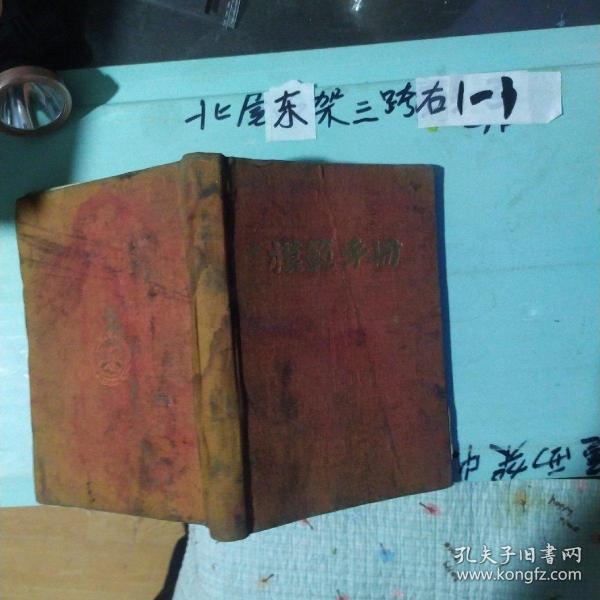 北屋东架三跨右1-1
模范手册
屋西架中
孔夫子旧书网
www.kongfz.com